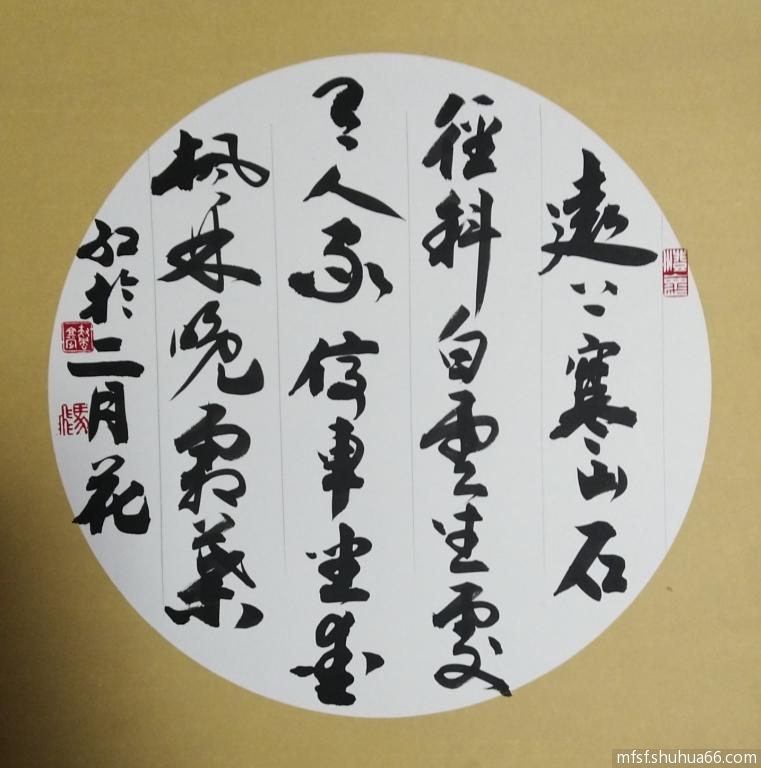 遠上寒山石
徑斜白雲生處
有人家停車坐愛
楓林晚霜葉
紅於二月花
mfsf.shuhua66.com